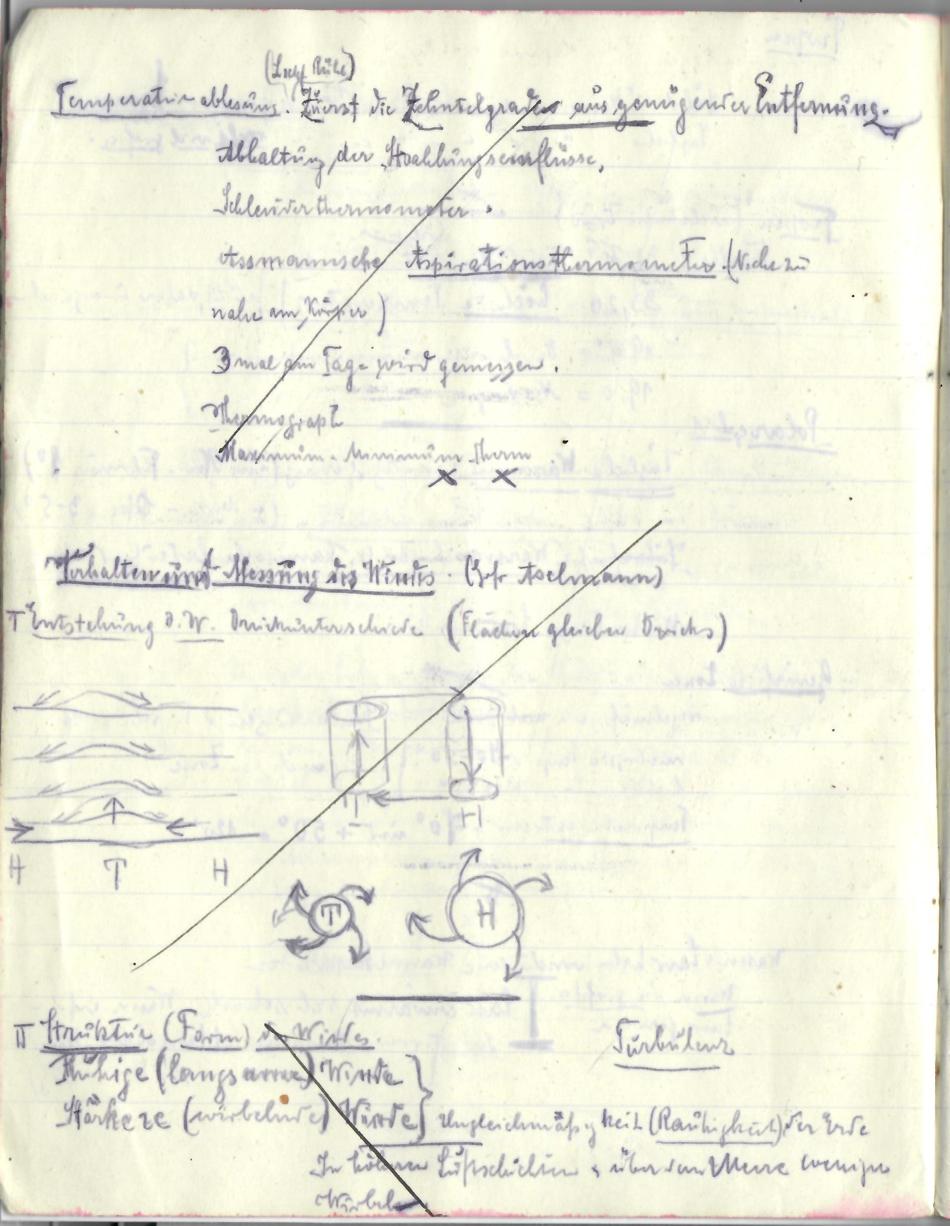 Temperaturablesung. Zuerst die Zehntelgrade aus genügender Entfernung.
Abhaltung der Strahlungseinflüsse.
Schleuderthermometer.
Assmannsche Aspirationsthermometer. (Nicht zu
nahe am Körper)
3 mal am Tage wird gemessen.
Thermograph
Maximum- Minimum-Therm
x x
Verhalten und Messung des Windes. (Aselmann)
I Entstehung d. W. Druckunterschiede (Flächen gleichen Drucks)
T H
H T H
T H
II Struktur (Form) des Windes.
Turbulenz
Ruhige (langsame) Winde
Stärkere (wirbelnde) Winde} Ungleichmäßigkeit (Rauhigkeit) der Erde
In höheren Luftschichten u. über dem Meere weniger
Wirbel